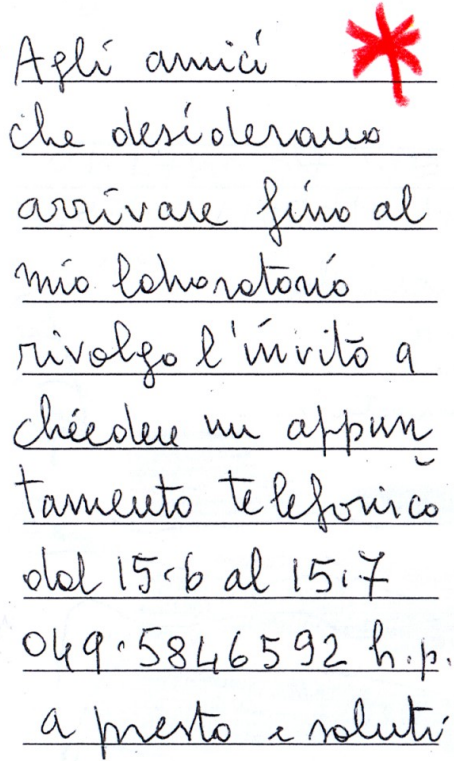 Agli amici
che desiderano
arrivare fino al
mio laboratorio
rivolgo l'invito a
chiedere un appun
tamento telefonico
dal 15.6 al 15.7
049.5846592 h.p.
a presto e saluti